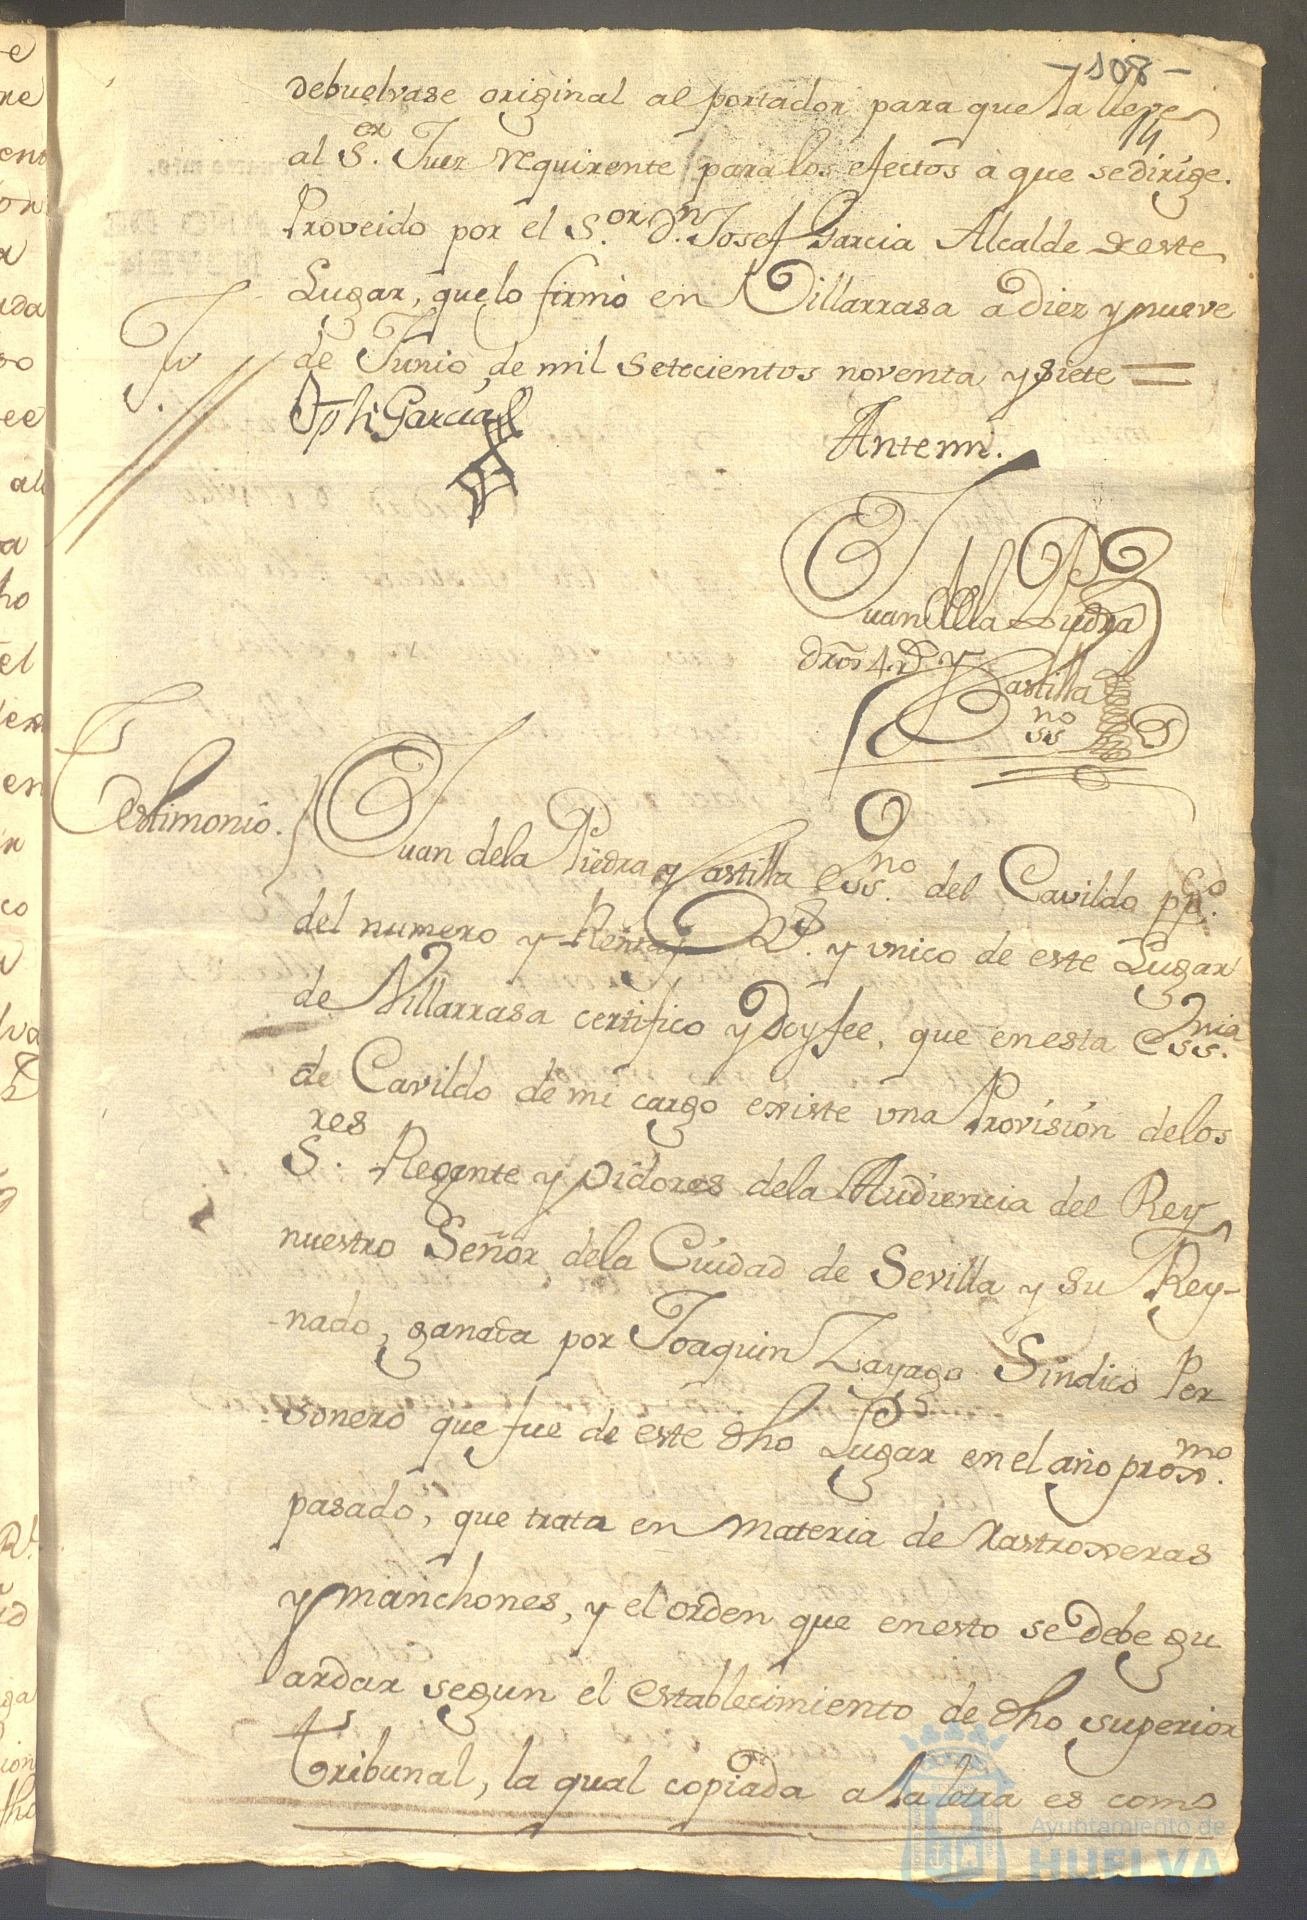 -108-
debuelvase original al portador para que la lleve
al S.or Juez requirente para los efectos à que se dirige.
Proveido por el S.or D.n Josef Garcia Alcalde deste
Lugar, que lo firmò en Villarrasa a diez y nueve
de Junio de mil setecientos noventa y siete
Jph Garcia
Ante mi.
Juan de la Piedra
dros 4 r.s y
Castilla
ssno
Testimonio.
Juan dela Piedra y Castilla Ess.no del Cavildo pp.co
del numero y Rentas R.s y vnico de este Lugar
de Villarrasa certifico y doy fee, que en esta Ess.nia
de Cavildo de mi cargo existe vna Provisión delos
S.res Regente y oidores dela Audiencia del Rey
nuestro Señor dela Ciudad de Sevilla y su Rey-
nado, ganada por Joaquin Zayago Sindico Per
sonero que fue de este dho Lugar en el año prox.mo
pasado, que trata en materia de Rastroxeras
y manchones, y el orden que en esto se debe gu
ardar segun el establecimiento de dho superior
tribunal, la qual copiada a la letra es como
Ayuntamiento de
HUELVA